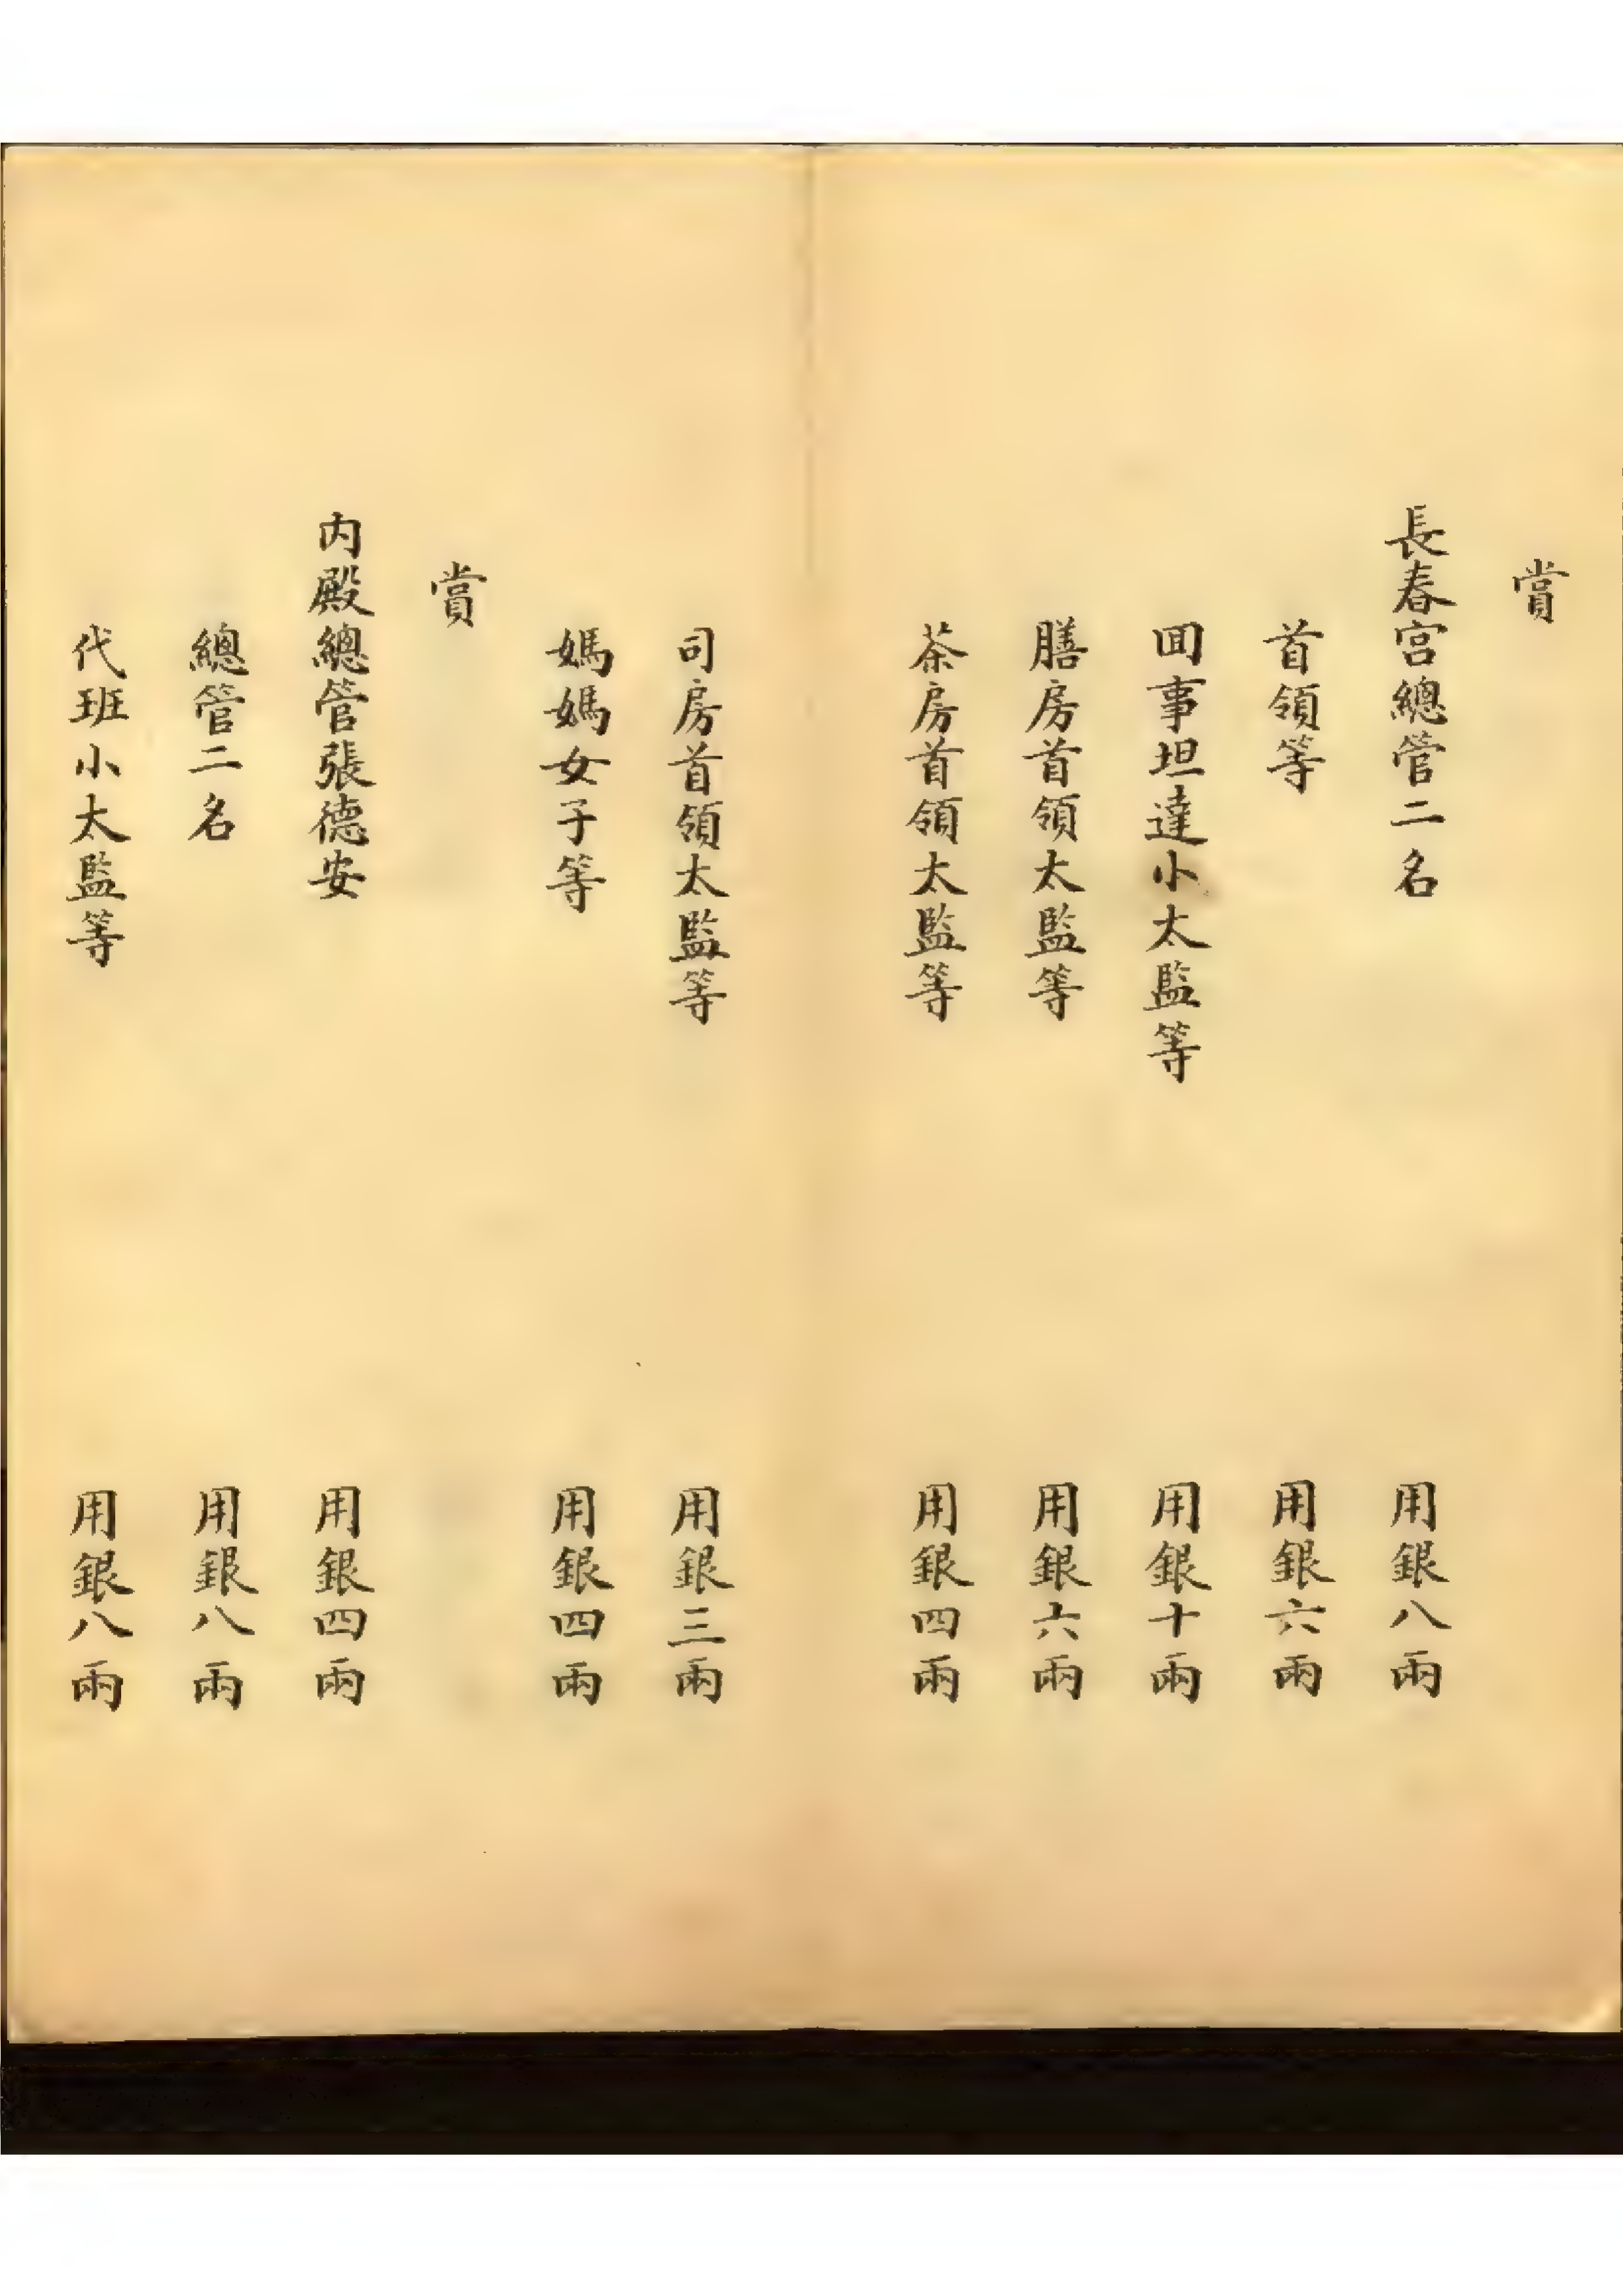 賞
長春宮總管二名 用銀八兩
首領等 用銀六兩
囬事坦達小太監等 用銀十兩
膳房首領太監等 用銀六兩
茶房首領太監等 用銀四兩
司房首領太監等 用銀三兩
媽媽女子等 用銀四兩
賞
內殿總管張德安 用銀四兩
總管二名 用銀八兩
代班小太監等 用銀八兩